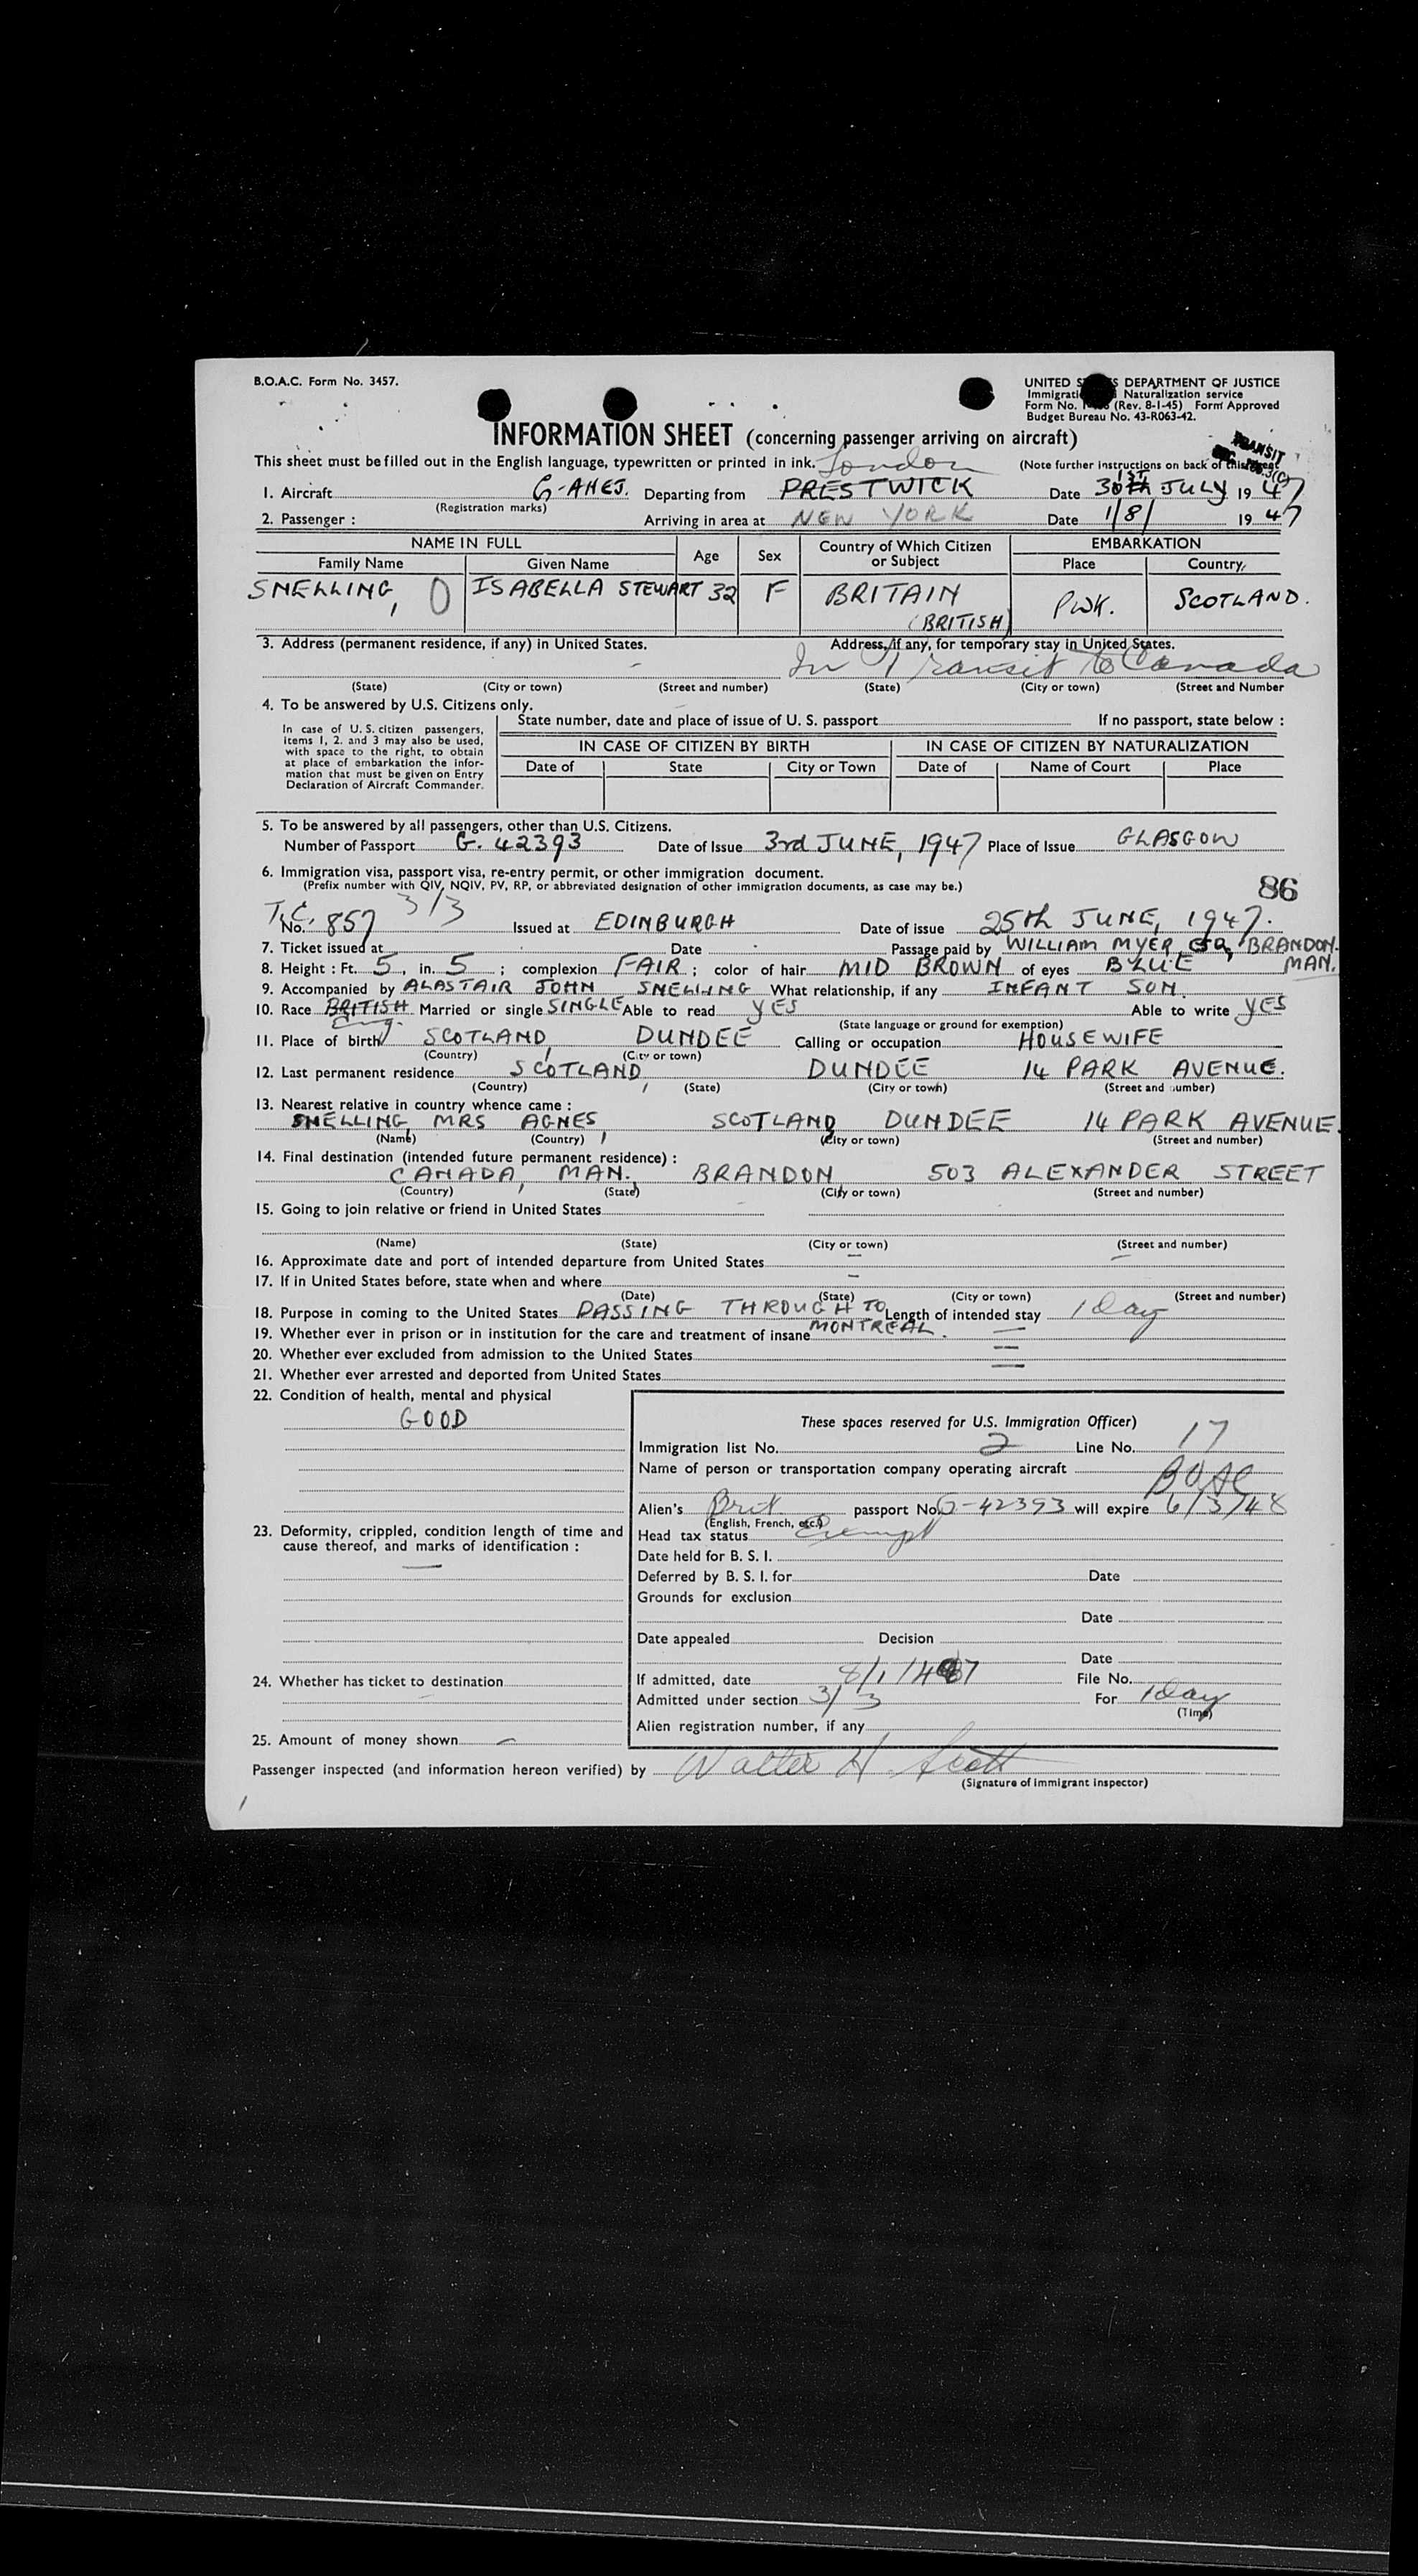 B.O.A.C. Form No. 3457.
UNITED S S DEPARTMENT OF JUSTICE
Immigrati Naturalization service
Form No. (Rev. 8-1-45) Form Approved
Budget Bureau No. 43-R063-42.
INFORMATION SHEET (concerning passenger arriving on aircraft)
TRANSIT
This sheet must be filled out in the English language, typewritten or printed in ink. London (Note further instructions on back of this sheet
1. Aircraft G-AHEJ. Departing from PRESTWICK Date 30th 1ST JULY 1947
(Registration marks)
2. Passenger : Arriving in area at NEW YORK Date 1/8/ 1947
NAME IN FULL Age Sex Country of Which Citizen or Subject EMBARKATION
Family Name Given Name Place Country
SNELLING, ISABELLA STEWART 32 F BRITAIN (BRITISH) PWK. SCOTLAND.
3. Address (permanent residence, if any) in United States. Address, if any, for temporary stay in United States.
- In Transit to Canada
(State) (City or town) (Street and number) (State) (City or town) (Street and Number
4. To be answered by U.S. Citizens only.
In case of U. S. citizen passengers, items 1, 2, and 3 may also be used, with space to the right, to obtain at place of embarkation the information that must be given on Entry Declaration of Aircraft Commander.
State number, date and place of issue of U. S. passport If no passport, state below :
IN CASE OF CITIZEN BY BIRTH IN CASE OF CITIZEN BY NATURALIZATION
Date of State City or Town Date of Name of Court Place
5. To be answered by all passengers, other than U.S. Citizens.
Number of Passport G. 42393 Date of Issue 3rd JUNE, 1947 Place of Issue GLASGOW
6. Immigration visa, passport visa, re-entry permit, or other immigration document.
(Prefix number with QIV, NQIV, PV, RP, or abbreviated designation of other immigration documents, as case may be.)
86
T.C. 3/3
No. 857 Issued at EDINBURGH Date of issue 25th JUNE, 1947.
7. Ticket issued at Date Passage paid by WILLIAM MYER, ESQ, BRANDON. MAN.
8. Height : Ft. 5, in. 5 ; complexion FAIR ; color of hair MID BROWN of eyes BLUE
9. Accompanied by ALASTAIR JOHN SNELLING What relationship, if any INFANT SON.
10. Race BRITISH Eng. Married or single SINGLE Able to read YES Able to write YES
(State language or ground for exemption)
11. Place of birth SCOTLAND, DUNDEE Calling or occupation HOUSEWIFE
(Country) (City or town)
12. Last permanent residence SCOTLAND, DUNDEE 14 PARK AVENUE.
(Country) (State) (City or town) (Street and number)
13. Nearest relative in country whence came :
SNELLING, MRS AGNES, SCOTLAND DUNDEE 14 PARK AVENUE.
(Name) (Country) (City or town) (Street and number)
14. Final destination (intended future permanent residence) :
CANADA, MAN., BRANDON, 503 ALEXANDER STREET
(Country) (State) (City or town) (Street and number)
15. Going to join relative or friend in United States
(Name) (State) (City or town) (Street and number)
16. Approximate date and port of intended departure from United States
17. If in United States before, state when and where
(Date) (State) (City or town) (Street and number)
18. Purpose in coming to the United States PASSING THROUGH TO MONTREAL. Length of intended stay 1 day
19. Whether ever in prison or in institution for the care and treatment of insane
20. Whether ever excluded from admission to the United States
21. Whether ever arrested and deported from United States
22. Condition of health, mental and physical
GOOD
These spaces reserved for U.S. Immigration Officer)
Immigration list No. 2 Line No. 17
Name of person or transportation company operating aircraft BOAC
Alien's Brit passport No. G-42393 will expire 6/3/48
(English, French, etc.)
23. Deformity, crippled, condition length of time and cause thereof, and marks of identification :
Head tax status Exempt
Date held for B. S. I.
Deferred by B. S. I. for Date
Grounds for exclusion
Date
Date appealed Decision
Date
24. Whether has ticket to destination
If admitted, date 8/1/47 File No.
Admitted under section 3/3 For 1 day
(Time)
Alien registration number, if any
25. Amount of money shown
Passenger inspected (and information hereon verified) by Walter H. Scott
(Signature of immigrant inspector)